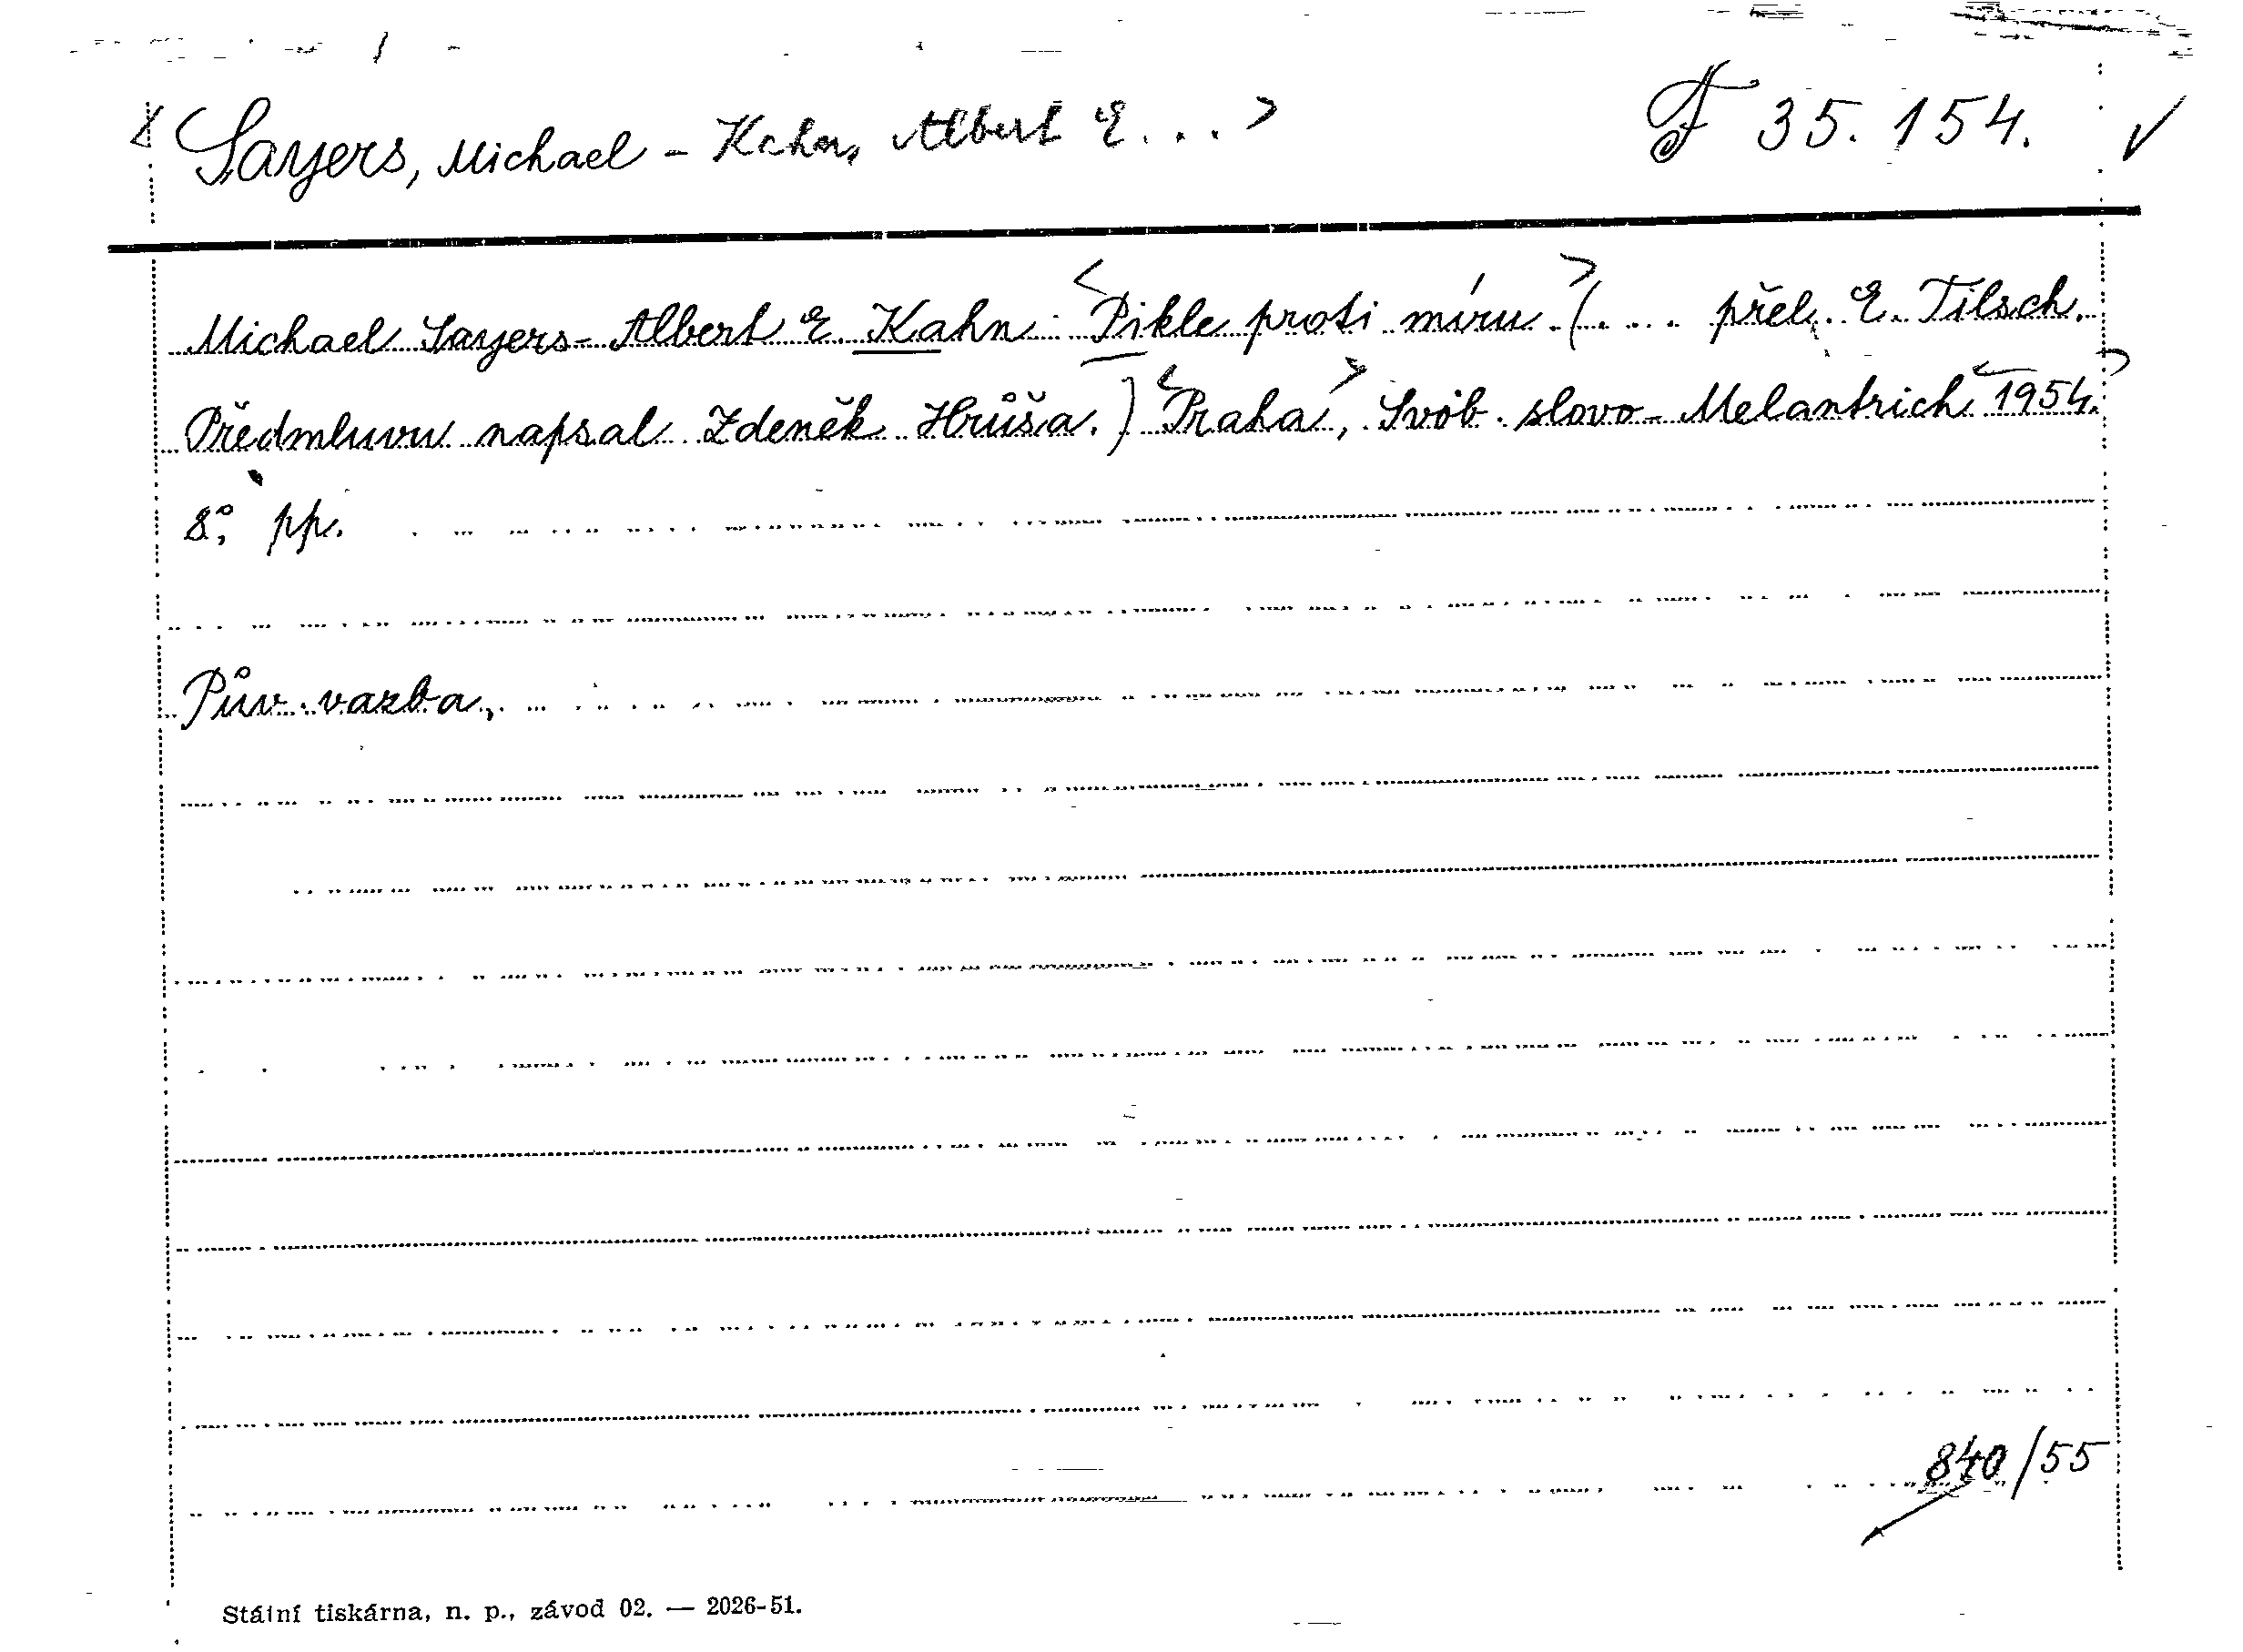 <Sayers, Michael - Kahn, Albert E...> F 35.154.
Michael Sayers - Albert E Kahn: <Pikle proti míru>. (.... přel. E. Tilsch.
Předmluvu napsal Zdeněk Hrůša.) <Praha>, Svob. slovo - Melantrich <1954.>
8°, pp.
Pův. vazba,
840/55
Státní tiskárna, n. p., závod 02. — 2026-51.